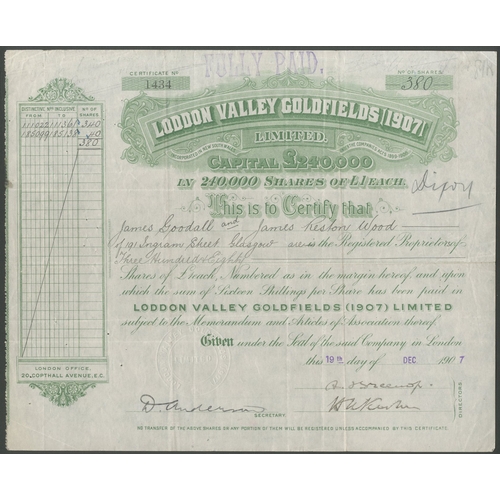 FULLY PAID.
CERTIFICATE No
1434
No OF SHARES
380
LODDON VALLEY GOLDFIELDS (1907)
LIMITED.
INCORPORATED IN NEW SOUTH WALES
CAPITAL £240,000
IN 240,000 SHARES OF £1 EACH.
This is to Certify that
James Goodall and James Keston Wood
of 191 Ingram Street Glasgow are the Registered Proprietors of
Three Hundred & Eighty
Shares of £1 each, Numbered as in the margin hereof and upon
which the sum of Sixteen Shillings per Share has been paid in
LODDON VALLEY GOLDFIELDS (1907) LIMITED
subject to the Memorandum and Articles of Association thereof.
Given under the Seal of the said Company in London
this 19th day of DEC 1907
D. Anderson
SECRETARY.
DIRECTORS
NO TRANSFER OF THE ABOVE SHARES OR ANY PORTION OF THEM WILL BE REGISTERED UNLESS ACCOMPANIED BY THIS CERTIFICATE
DISTINCTIVE Nos INCLUSIVE
No OF
FROM TO SHARES
111022 111361 340
185099 185138 40
380
LONDON OFFICE.
20, COPTHALL AVENUE, E.C.